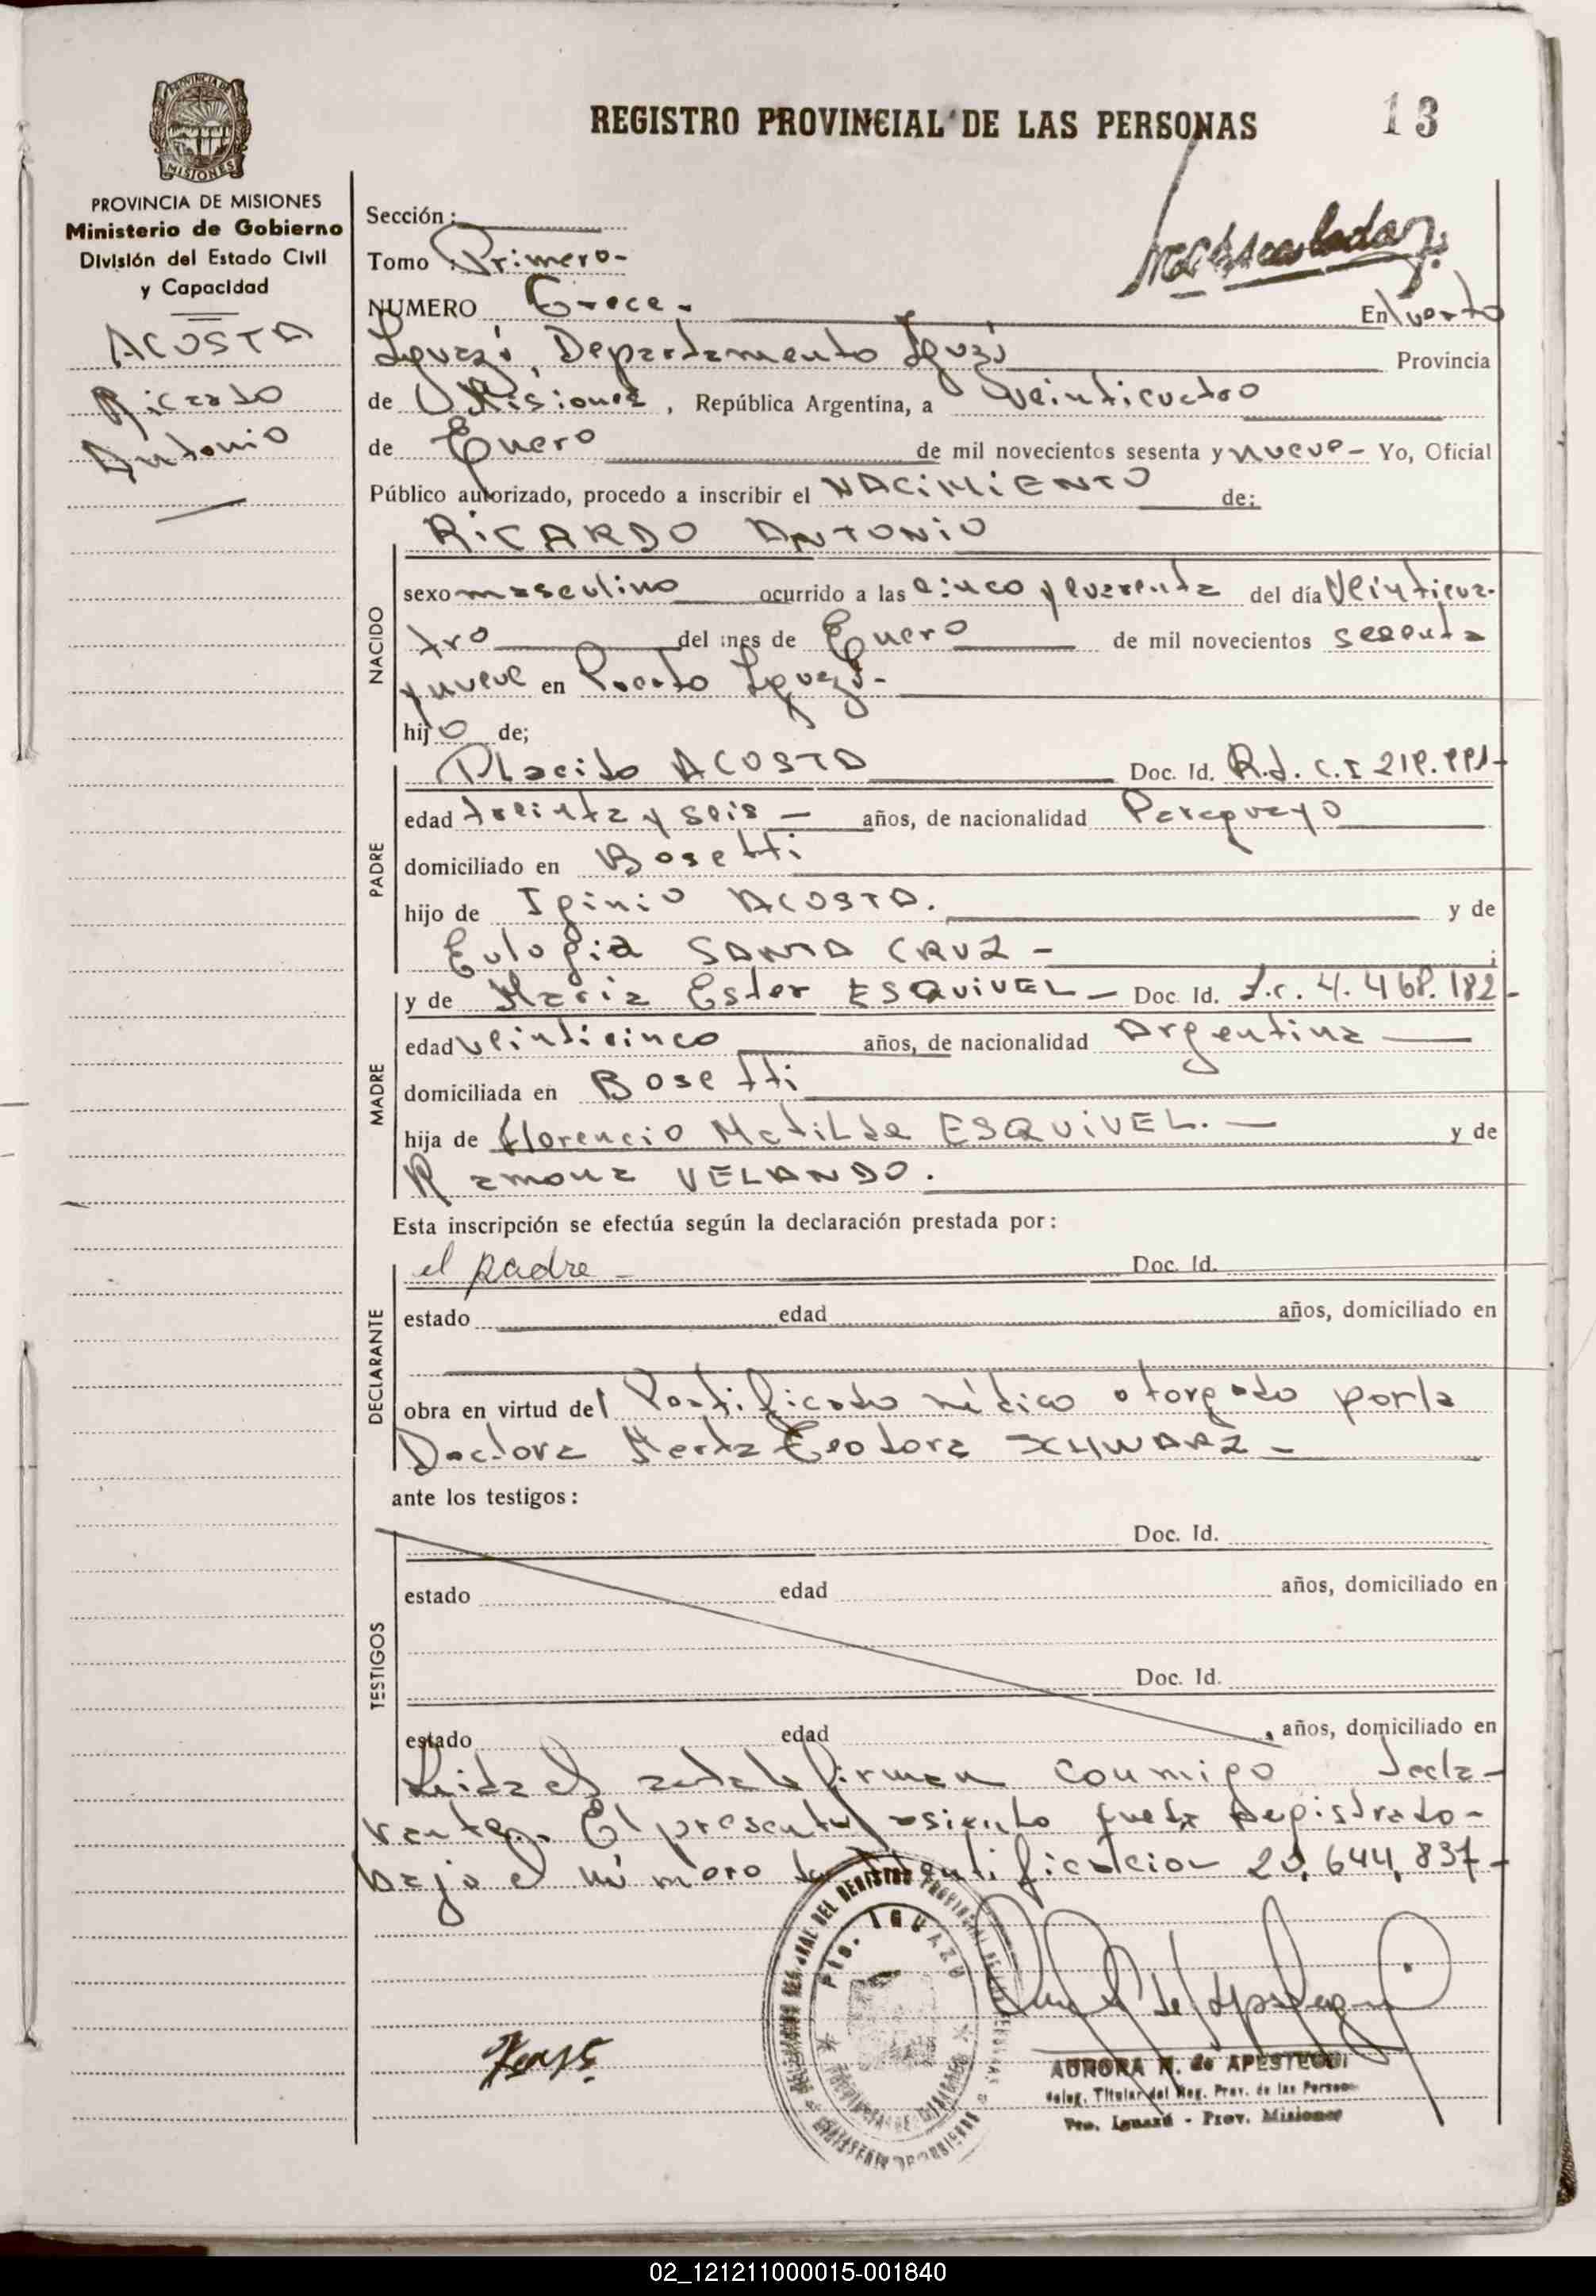 REGISTRO PROVINCIAL DE LAS PERSONAS
13
PROVINCIA DE MISIONES
Ministerio de Gobierno
División del Estado Civil
y Capacidad
ACOSTA
Ricardo
Antonio
Sección:
Tomo Primero-
NUMERO Trece. En Puerto
Iguazú Departamento Iguazú Provincia
de Misiones, República Argentina, a Veinticuatro
de Enero de mil novecientos sesenta y nueve- Yo, Oficial
Público autorizado, procedo a inscribir el NACIMIENTO de;
RICARDO ANTONIO
NACIDO
sexo masculino ocurrido a las cinco y cuarenta del día Veinticua-
tro del mes de Enero de mil novecientos sesenta
y nueve en Puerto Iguazú-
hijo de;
PADRE
Placido ACOSTA Doc. Id. R.d. C.I
edad treinta y seis - años, de nacionalidad Paraguayo
domiciliado en Bosetti
hijo de Iginio ACOSTA. y de
Eulogia SANTA CRUZ - ;
MADRE
y de Maria Ester ESQUIVEL - Doc. Id. L.C. 4.468.182-
edad veinticinco años, de nacionalidad Argentina
domiciliada en Bosetti
hija de Florencio Matilde ESQUIVEL.- y de
Ramona VELANDO.
Esta inscripción se efectúa según la declaración prestada por:
DECLARANTE
el padre - Doc. Id.
estado edad años, domiciliado en
obra en virtud del Certificado médico otorgado por la
Doctora Herta Teodora SCHWARZ -
ante los testigos:
TESTIGOS
Doc. Id.
estado edad años, domiciliado en
Doc. Id.
estado edad años, domiciliado en
Leida el acta la firman conmigo decla-
rante. El presente asiento queda registrado-
bajo el número de identificacion 20,644,837-
PTO. IGUAZU
AURORA N. de APESTEGUI
Deleg. Titular del Reg. Prov. de las Personas
Pto. Iguazú - Prov. Misiones
02_121211000015-001840